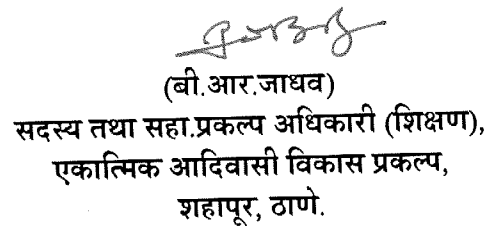 (बी.आर.जाधव)
सदस्य तथा सहा.प्रकल्प अधिकारी (शिक्षण),
एकात्मिक आदिवासी विकास प्रकल्प,
शहापूर, ठाणे.